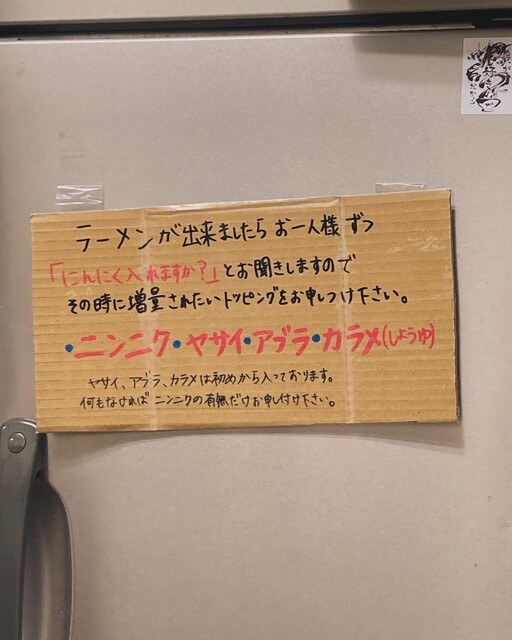 ラーメンが出来ましたらお一人様ずつ
「にんにく入れますか?」とお聞きしますので
その時に増量されたいトッピングをお申しつけ下さい。
・ニンニク・ヤサイ・アブラ・カラメ(しょうゆ)
ヤサイ、アブラ、カラメは初めから入っております。
何もなければニンニクの有無だけお申し付け下さい。